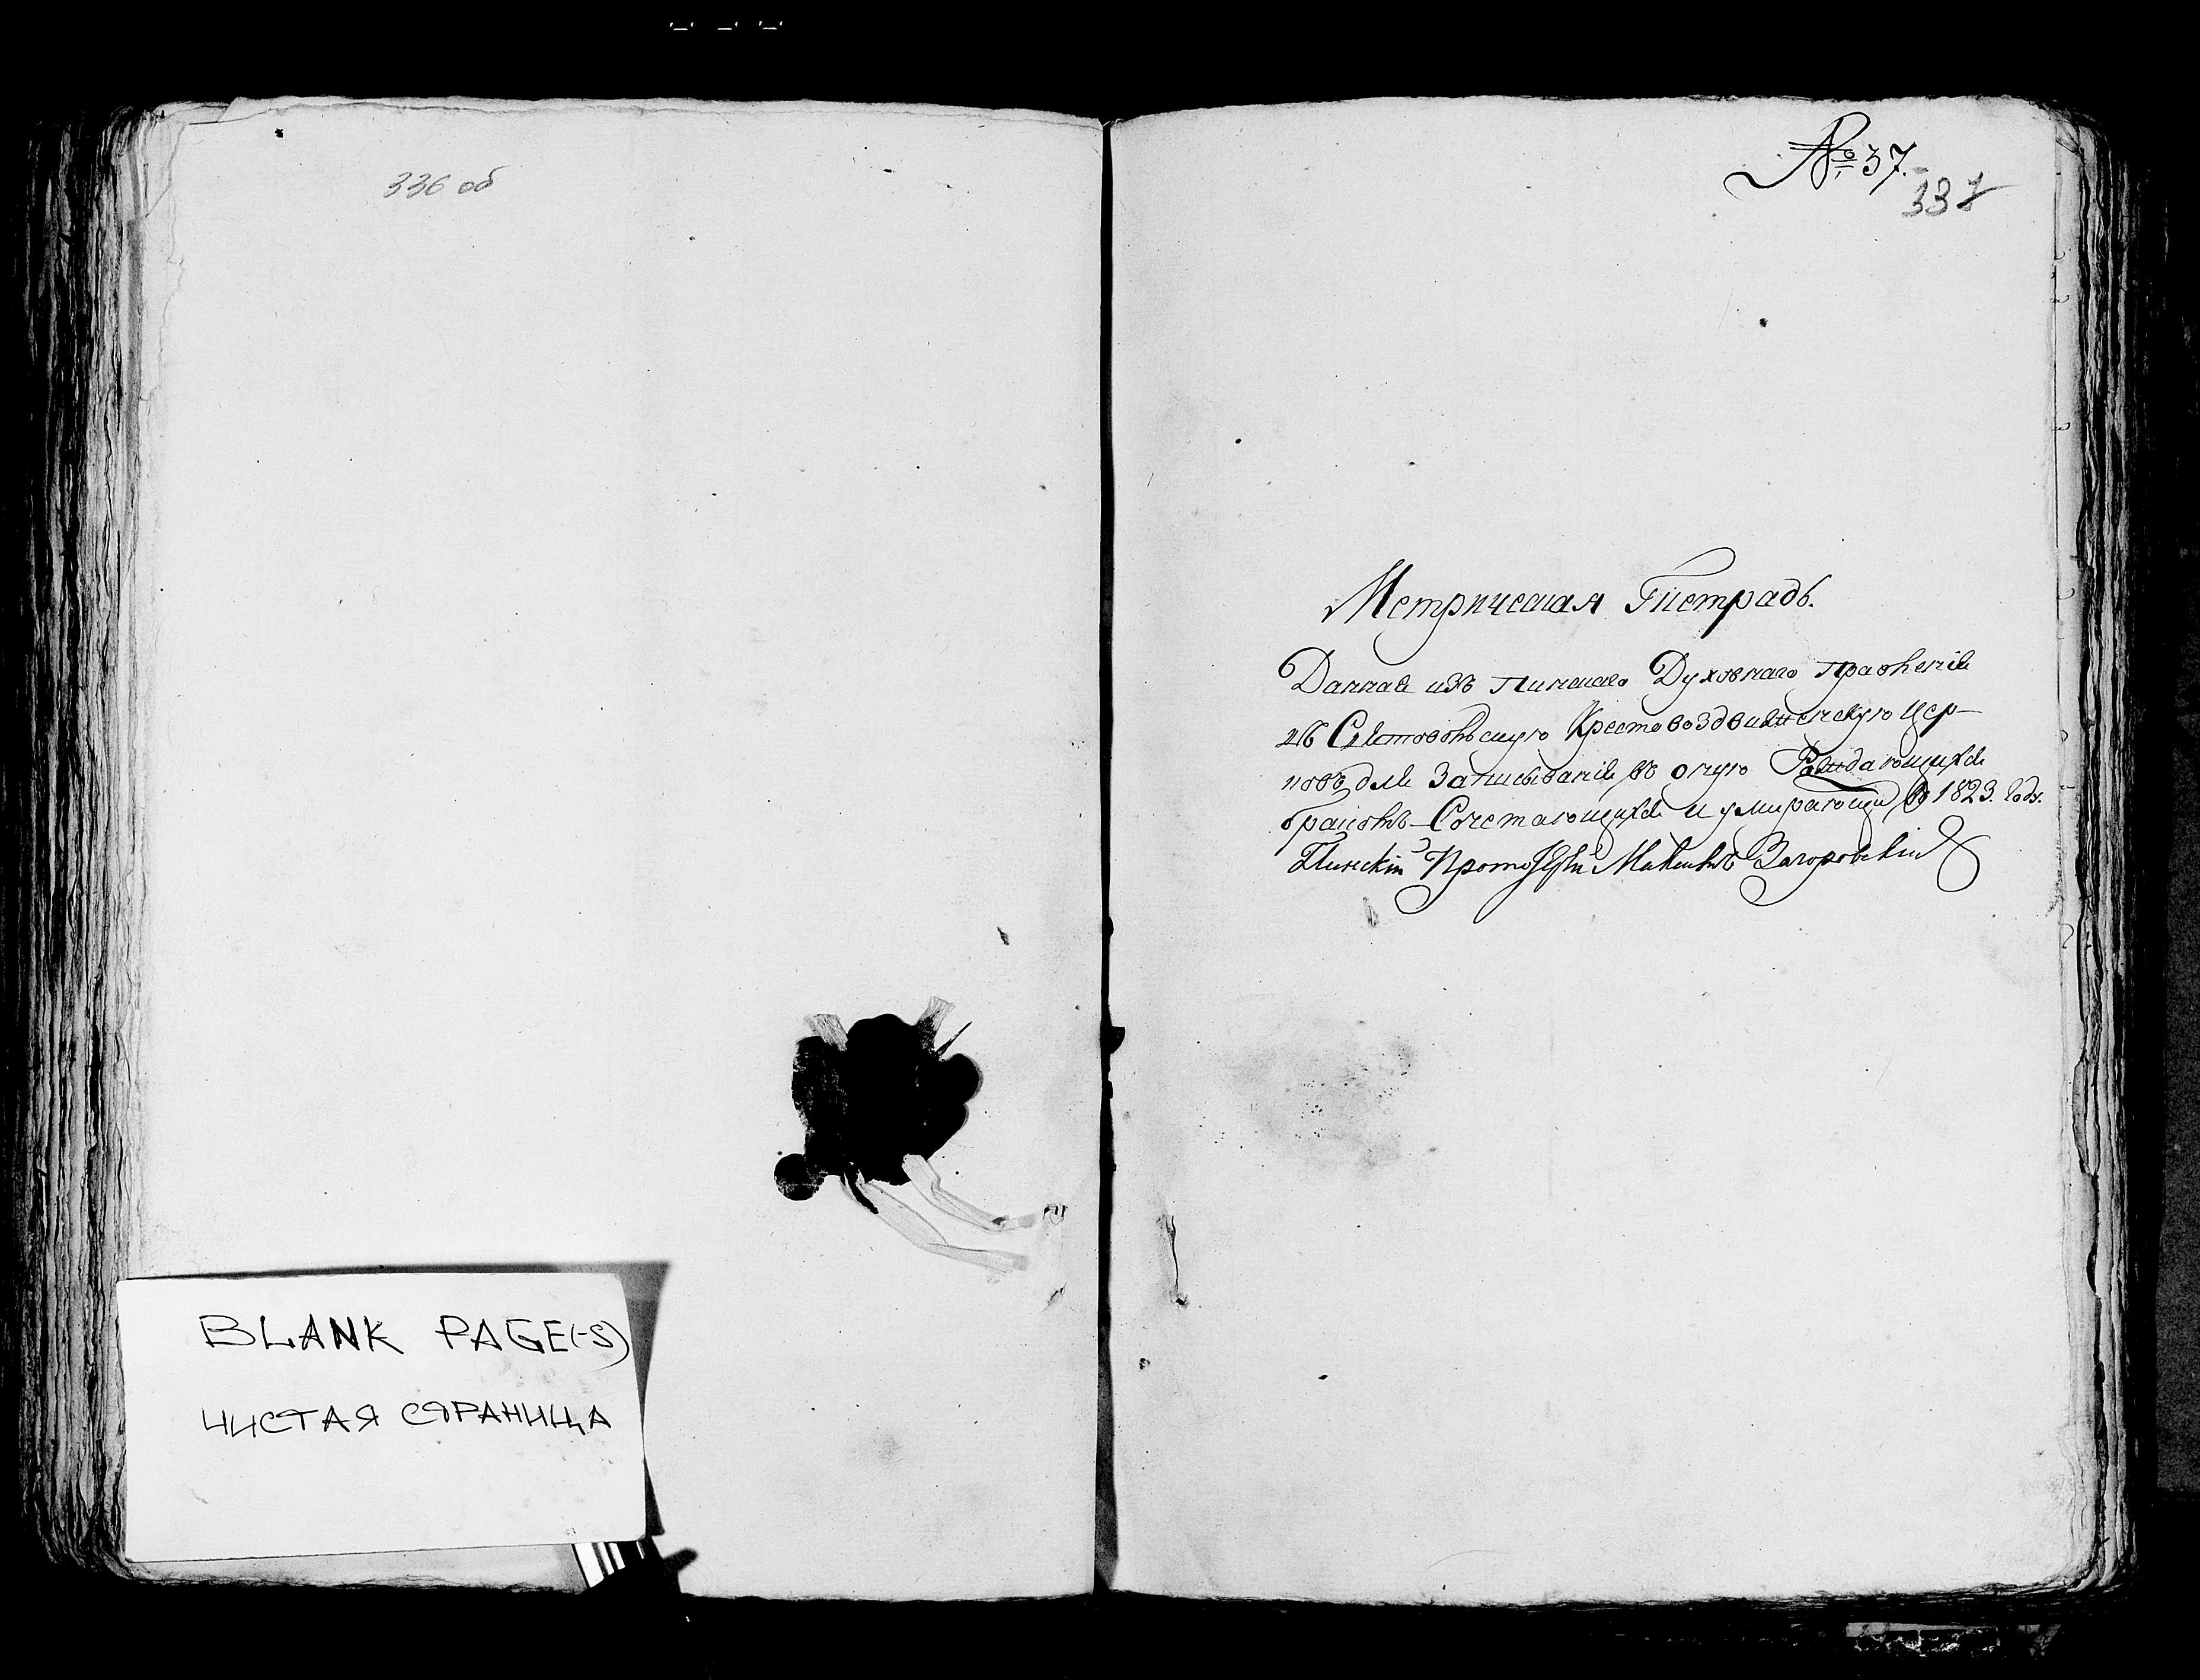 336 об
BLANK PAGE(-S)
ЧИСТАЯ СТРАНИЦА
№ 37.
337
Метрическая Тетрадь.
Данная изъ Пинскаго Духовнаго правленія
въ Святовольскую Крестовоздвиженскую цер-
ковь для Записыванія въ оную Раждающихся
браковъ Сочетающихся и умирающи въ 1823. Году.
Пинскій Протоіерей Загоровскій